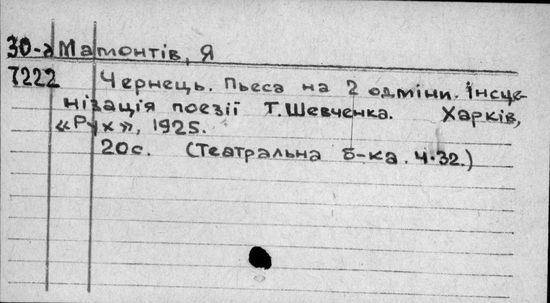 30-а Мамонтів, Я
7222 Чернець. Пьеса на 2 одміни. Інсце-
нізація поезії Т. Шевченка. Харків,
«Рух», 1925.
20с. (Театральна б-ка. Ч.32.)